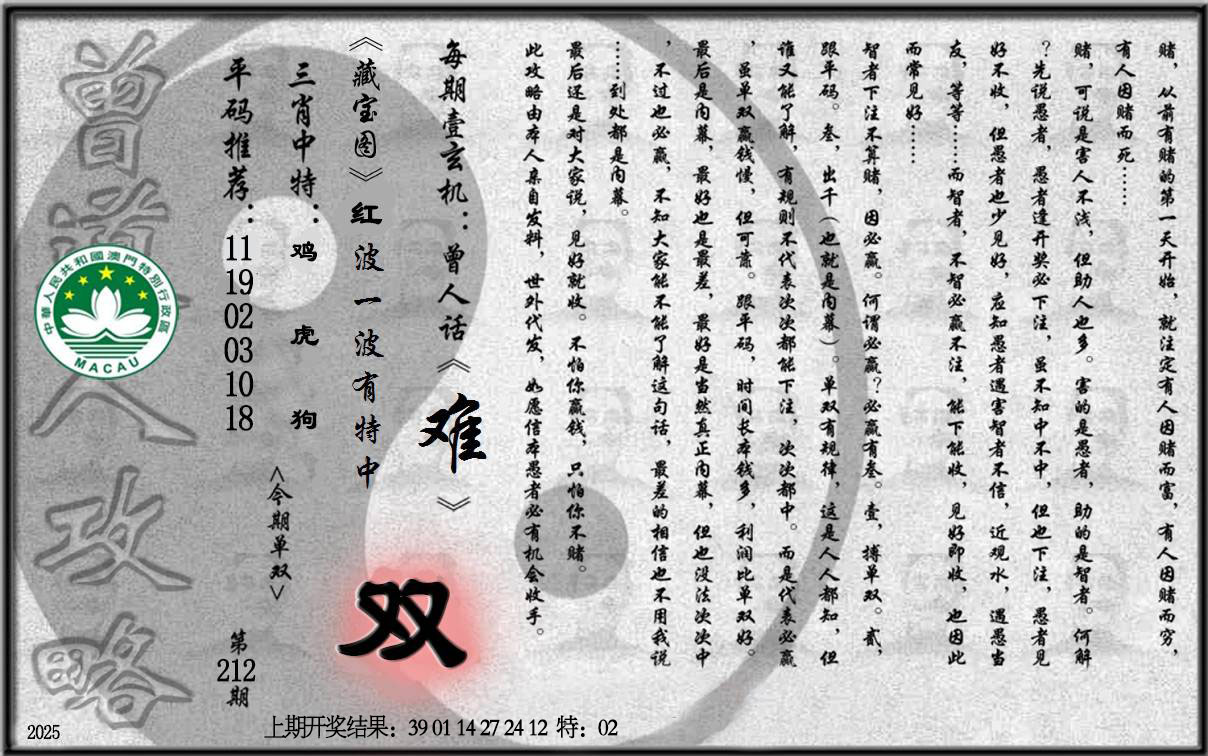 赌，从前有赌的第一天开始，就注定有人因赌而富，有人因赌而穷，
有人因赌而死……
赌，可说是害人不浅，但助人也多。害的是愚者，助的是智者。何解
？先说愚者，愚者逢开奖必下注，虽不知中不中，但也下注，愚者见
好不收，但愚者也少见好，应知愚者遇害智者不信，近观水，遇愚当
友，等等……而智者，不智必赢不注，能下能收，见好即收，也因此
而常见好……
智者下注不算赌，因必赢。何谓必赢？必赢有叁。壹，搏单双。贰，
跟平码。叁，出千（也就是内幕）。单双有规律，这是人人都知，但
谁又能了解，有规则不代表次次都能下注，次次都中。而是代表必赢
，虽单双赢钱慢，但可靠。跟平码，时间长本钱多，利润比单双好。
最后是内幕，最好也是最差，最好是当然真正内幕，但也没法次次中
，不过也必赢，不知大家能不能了解这句话，最差的相信也不用我说
……到处都是内幕。
最后还是对大家说，见好就收。不怕你赢钱，只怕你不赌。
此攻略由本人亲自发料，世外代发，如愿信本愚者必有机会收手。
每期壹玄机：曾人话《难》
《藏宝图》红波一波有特中
双
三肖中特：鸡虎狗
<今期单双>
平码推荐：11 19 02 03 10 18
第212期
曾道人攻略
中華人民共和國澳門特別行政區
MACAU
2025
上期开奖结果：39 01 14 27 24 12 特：02